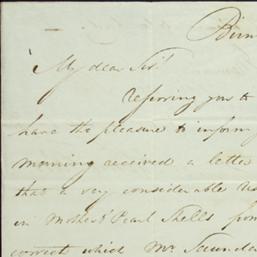 My dear Sir!
Referring you to
have the pleasure to inform
morning received a letter
that a very considerable
in Mother o' Pearl Shells from
correct which Mr. Saunde